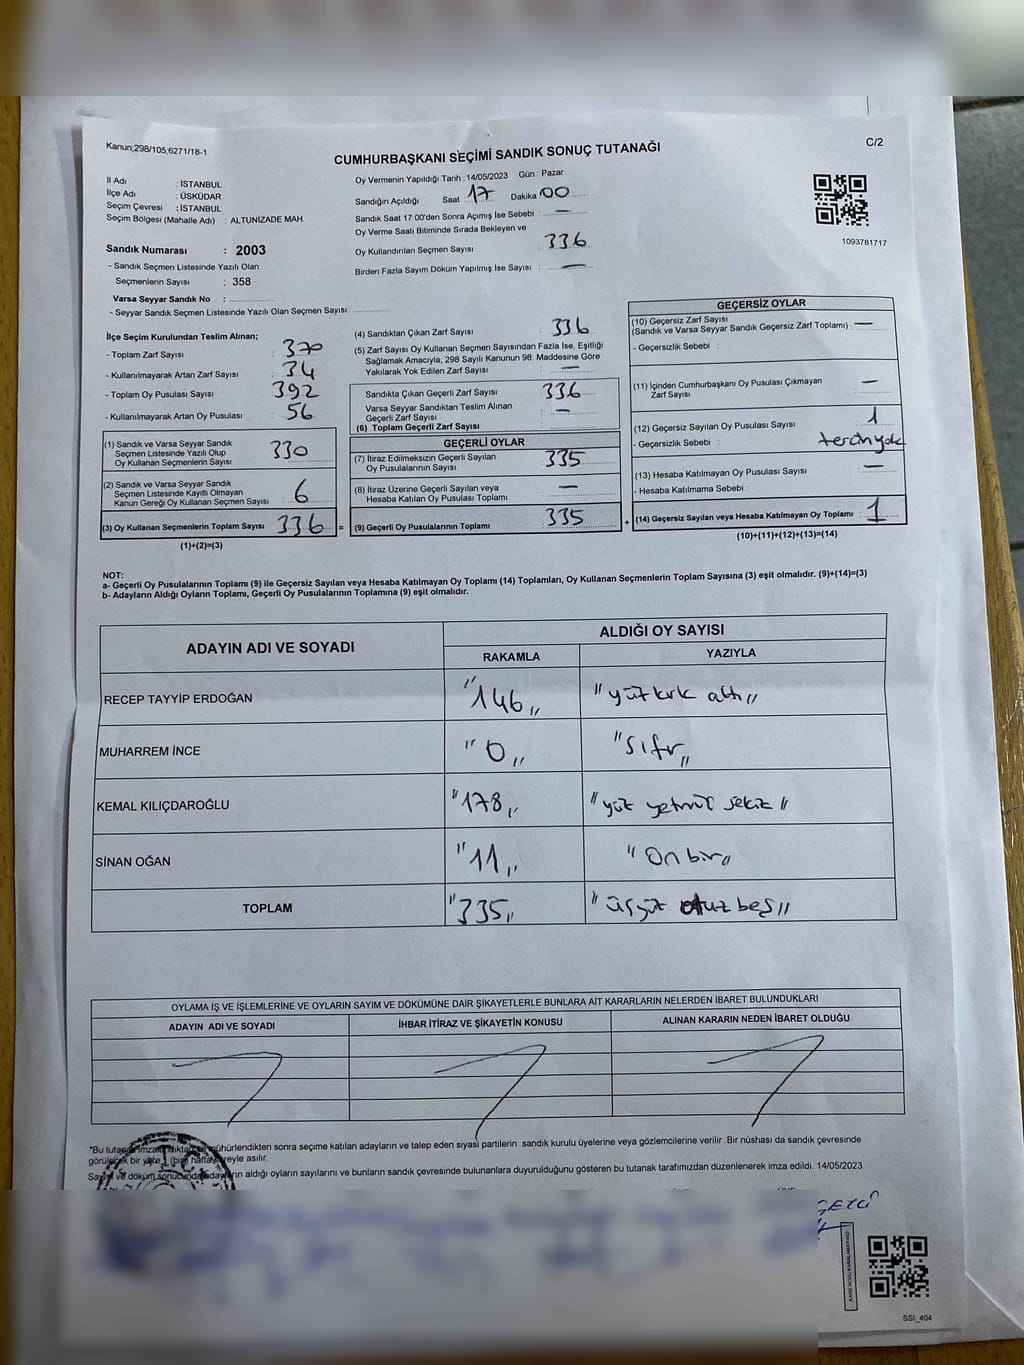 Kanun;298/105;6271/18-1
C/2
CUMHURBAŞKANI SEÇİMİ SANDIK SONUÇ TUTANAĞI
İl Adı : İSTANBUL
İlçe Adı : ÜSKÜDAR
Seçim Çevresi : İSTANBUL
Seçim Bölgesi (Mahalle Adı) : ALTUNİZADE MAH.
Sandık Numarası : 2003
- Sandık Seçmen Listesinde Yazılı Olan
Seçmenlerin Sayısı : 358
Varsa Seyyar Sandık No :
- Seyyar Sandık Seçmen Listesinde Yazılı Olan Seçmen Sayısı:
Oy Vermenin Yapıldığı Tarih : 14/05/2023 Gün : Pazar
Sandığın Açıldığı Saat 17 Dakika 00
Sandık Saat 17:00'den Sonra Açımış İse Sebebi : —
Oy Verme Saati Bitiminde Sırada Bekleyen ve
Oy Kullandırılan Seçmen Sayısı : 336
Birden Fazla Sayım Döküm Yapılmış İse Sayısı : —
1093781717
İlçe Seçim Kurulundan Teslim Alınan;
- Toplam Zarf Sayısı : 370
- Kullanılmayarak Artan Zarf Sayısı : 34
- Toplam Oy Pusulası Sayısı : 392
- Kullanılmayarak Artan Oy Pusulası : 56
(1) Sandık ve Varsa Seyyar Sandık
Seçmen Listesinde Yazılı Olup
Oy Kullanan Seçmenlerin Sayısı : 330
(2) Sandık ve Varsa Seyyar Sandık
Seçmen Listesinde Kayıtlı Olmayan
Kanun Gereği Oy Kullanan Seçmen Sayısı : 6
(3) Oy Kullanan Seçmenlerin Toplam Sayısı : 336 =
(1)+(2)=(3)
(4) Sandıktan Çıkan Zarf Sayısı : 336
(5) Zarf Sayısı Oy Kullanan Seçmen Sayısından Fazla İse, Eşitliği
Sağlamak Amacıyla, 298 Sayılı Kanunun 98. Maddesine Göre
Yakılarak Yok Edilen Zarf Sayısı : —
Sandıkta Çıkan Geçerli Zarf Sayısı : 336
Varsa Seyyar Sandıktan Teslim Alınan
Geçerli Zarf Sayısı : —
(6) Toplam Geçerli Zarf Sayısı :
GEÇERLİ OYLAR
(7) İtiraz Edilmeksizin Geçerli Sayılan
Oy Pusulalarının Sayısı : 335
(8) İtiraz Üzerine Geçerli Sayılan veya
Hesaba Katılan Oy Pusulası Toplamı : —
(9) Geçerli Oy Pusulalarının Toplamı : 335 +
GEÇERSİZ OYLAR
(10) Geçersiz Zarf Sayısı
(Sandık ve Varsa Seyyar Sandık Geçersiz Zarf Toplamı) : —
- Geçersizlik Sebebi :
(11) İçinden Cumhurbaşkanı Oy Pusulası Çıkmayan
Zarf Sayısı : —
(12) Geçersiz Sayılan Oy Pusulası Sayısı : 1
- Geçersizlik Sebebi : tercih yok
(13) Hesaba Katılmayan Oy Pusulası Sayısı : —
- Hesaba Katılmama Sebebi :
(14) Geçersiz Sayılan veya Hesaba Katılmayan Oy Toplamı : 1
(10)+(11)+(12)+(13)=(14)
NOT:
a- Geçerli Oy Pusulalarının Toplamı (9) ile Geçersiz Sayılan veya Hesaba Katılmayan Oy Toplamı (14) Toplamları, Oy Kullanan Seçmenlerin Toplam Sayısına (3) eşit olmalıdır. (9)+(14)=(3)
b- Adayların Aldığı Oyların Toplamı, Geçerli Oy Pusulalarının Toplamına (9) eşit olmalıdır.
ADAYIN ADI VE SOYADI
ALDIĞI OY SAYISI
RAKAMLA YAZIYLA
RECEP TAYYİP ERDOĞAN "146" "yüz kırk altı"
MUHARREM İNCE "0" "Sıfır"
KEMAL KILIÇDAROĞLU "178" "yüz yetmiş sekiz"
SİNAN OĞAN "11" "On bir"
TOPLAM "335" "üçyüz otuz beş"
OYLAMA İŞ VE İŞLEMLERİNE VE OYLARIN SAYIM VE DÖKÜMÜNE DAİR ŞİKAYETLERLE BUNLARA AİT KARARLARIN NELERDEN İBARET BULUNDUKLARI
ADAYIN ADI VE SOYADI İHBAR İTİRAZ VE ŞİKAYETİN KONUSU ALINAN KARARIN NEDEN İBARET OLDUĞU
*Bu tutanak imzalandıktan ve mühürlendikten sonra seçime katılan adayların ve talep eden siyasi partilerin sandık kurulu üyelerine veya gözlemcilerine verilir. Bir nüshası da sandık çevresinde
görülecek bir yere 1 (bir) hafta süreyle asılır.
Sayım ve döküm sonucunda adayların aldığı oyların sayılarını ve bunların sandık çevresinde bulunanlara duyurulduğunu gösteren bu tutanak tarafımızdan düzenlenerek imza edildi. 14/05/2023
SSI_404